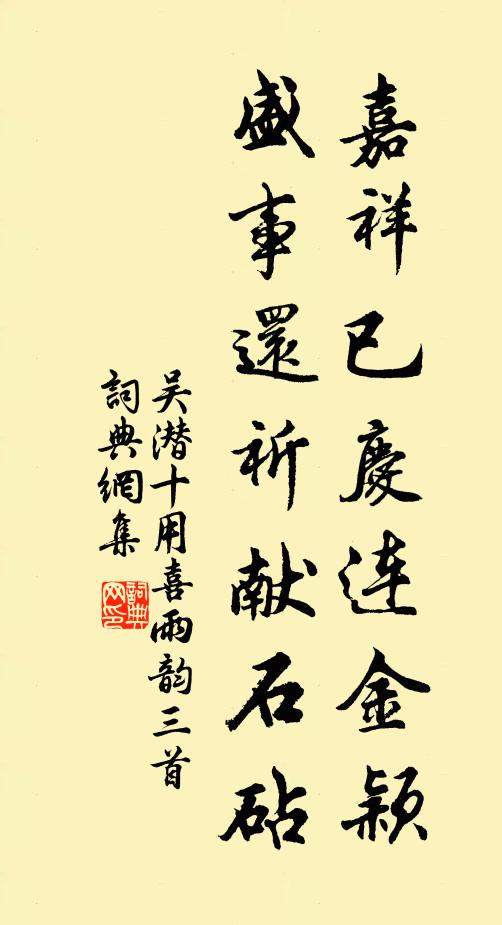 嘉祥已慶連金穎
盛事還祈献石砧
吴潜十用喜雨韵三首
詞典網集
詞典網印